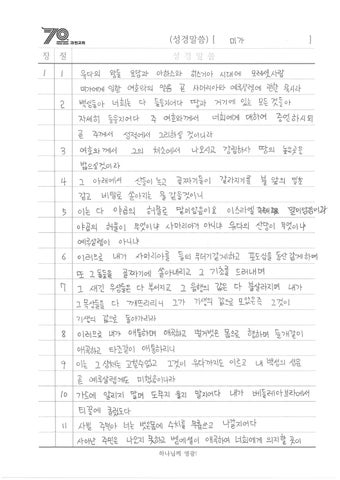 70 과천교회
(성경말씀) [ 미가 ]
장 절
1 1 유다의 왕들 요담과 아하스와 히스기야 시대에 모레셋 사람
미가에게 임한 여호와의 말씀 곧 사마리아와 예루살렘에 관한 묵시라
2 백성들아 너희는 다 들을지어다 땅과 거기에 있는 모든 것들아
자세히 들을지어다 주 여호와께서 너희에게 대하여 증언하시되
곧 주께서 성전에서 그리하실 것이니라
3 여호와께서 그의 처소에서 나오시고 강림하사 땅의 높은 곳을
밟으실 것이라
4 그 아래에서 산들이 녹고 골짜기들이 갈라지기를 불 앞의 밀초
같고 비탈로 쏟아지는 물 같을 것이니
5 이는 다 야곱의 허물로 말미암음이요 이스라엘 말미암음이라
야곱의 허물이 무엇이냐 사마리아가 아니냐 유다의 산당이 무엇이냐
예루살렘이 아니냐
6 이러므로 내가 사마리아를 들의 무더기 같게 하고 포도 심을 동산 같게 하며
또 그 돌들을 골짜기에 쏟아내리고 그 기초를 드러내며
7 그 새긴 우상들은 다 부서지고 그 음행의 값은 다 불살라지며 내가
그 목상들을 다 깨뜨리리니 그가 기생의 값으로 모았은즉 그것이
기생의 값으로 돌아가리라
8 이러므로 내가 애통하며 애곡하고 벌거벗은 몸으로 행하며 들개 같이
애곡하고 타조 같이 애통하리니
9 이는 그 상처는 고칠 수 없고 그것이 유다까지도 이르고 내 백성의 성문
곧 예루살렘에도 미쳤음이니라
10 가드에 알리지 말며 도무지 울지 말지어다 내가 베들레아브라에서
티끌에 굴렀도다
11 사빌 주민아 너는 벗은 몸에 수치를 무릅쓰고 나갈지어다
사아난 주민은 나오지 못하고 벧에셀이 애곡하여 너희에게 의지할 곳이
하나님께 영광!